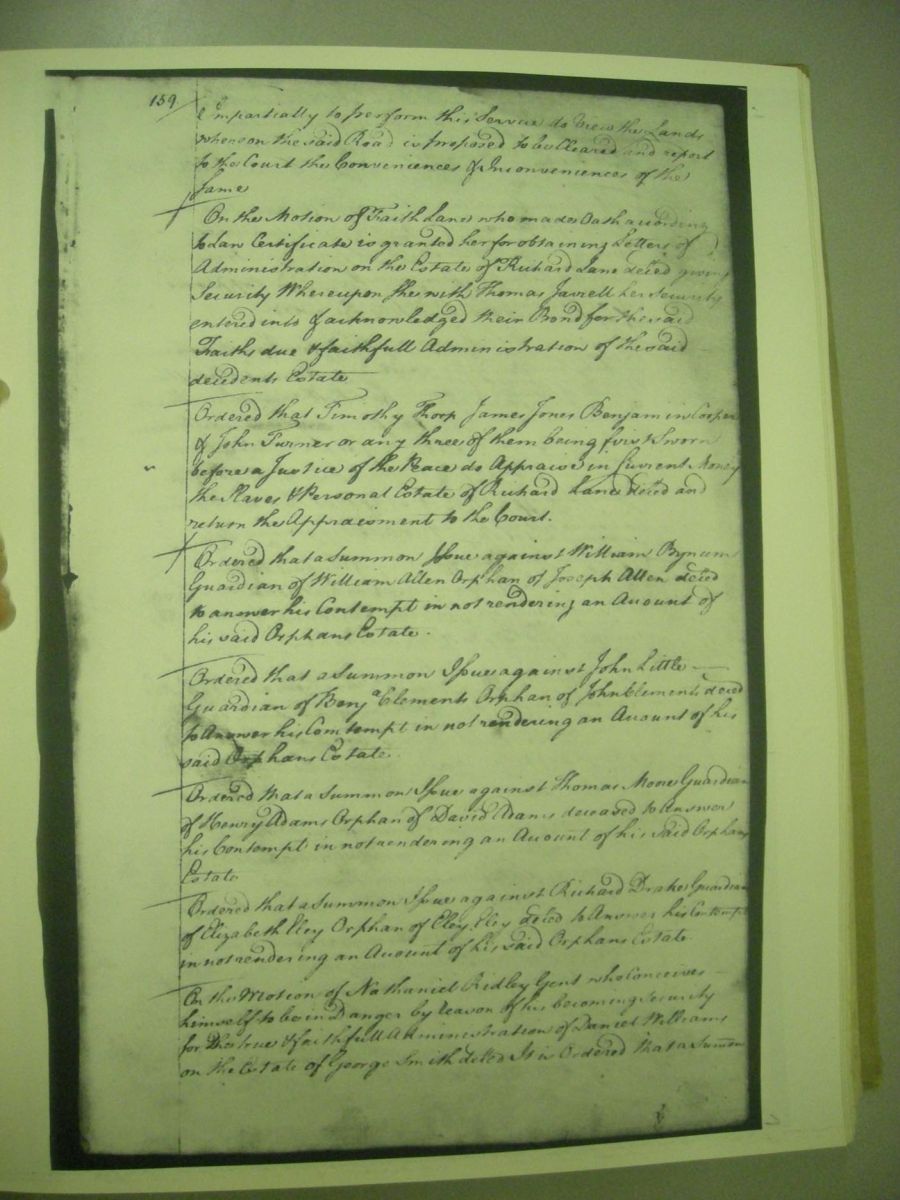 159
impartially to perform this Service do View the Lands
whereon the said Road is proposed to be Cleared and report
to the Court the Conveniences & Inconveniences of the
Same
On the Motion of Faith Lane who made Oath according
to Law Certificate is granted her for obtaining Letters of
Administration on the Estate of Richard Lane deced giving
Security Whereupon She with Thomas Jarrell her Security
entered into & acknowledged their Bond for the said
Faiths due & faithfull Administration of the said
decedents Estate
Ordered that Timothy Thorp James Jones Benjamin Cooper
& John Turner or any three of them being first Sworn
before a Justice of the Peace do Appraise in Current Money
the Slaves & Personal Estate of Richard Lane deced and
return the Appraisment to the Court.
Ordered that a Summon Issue against William Bynum
Guardian of William Allen Orphan of Joseph Allen deced
to answer his Contempt in not rendering an Account of
his said Orphans Estate.
Ordered that a Summon Issue against John Little
Guardian of Benja Clements Orphan of John Clements deced
to Answer his Contempt in not rendering an Account of his
said Orphans Estate.
Ordered that a Summon Issue against Thomas Moore Guardian
of Henry Adams Orphan of David Adams deceased to Answer
his Contempt in not rendering an Account of his said Orphans
Estate
Ordered that a Summon Issue against Richard Drake Guardian
of Elizabeth Eley Orphan of Eley Eley deced to Answer his Contempt
in not rendering an Account of his said Orphans Estate
On the Motion of Nathaniel Ridley Gent who Conceives
himself to be in Danger by reason of his becoming Security
for the true & faithfull Administration of Daniel Williams
on the Estate of George Smith deced It is Ordered that a Summon